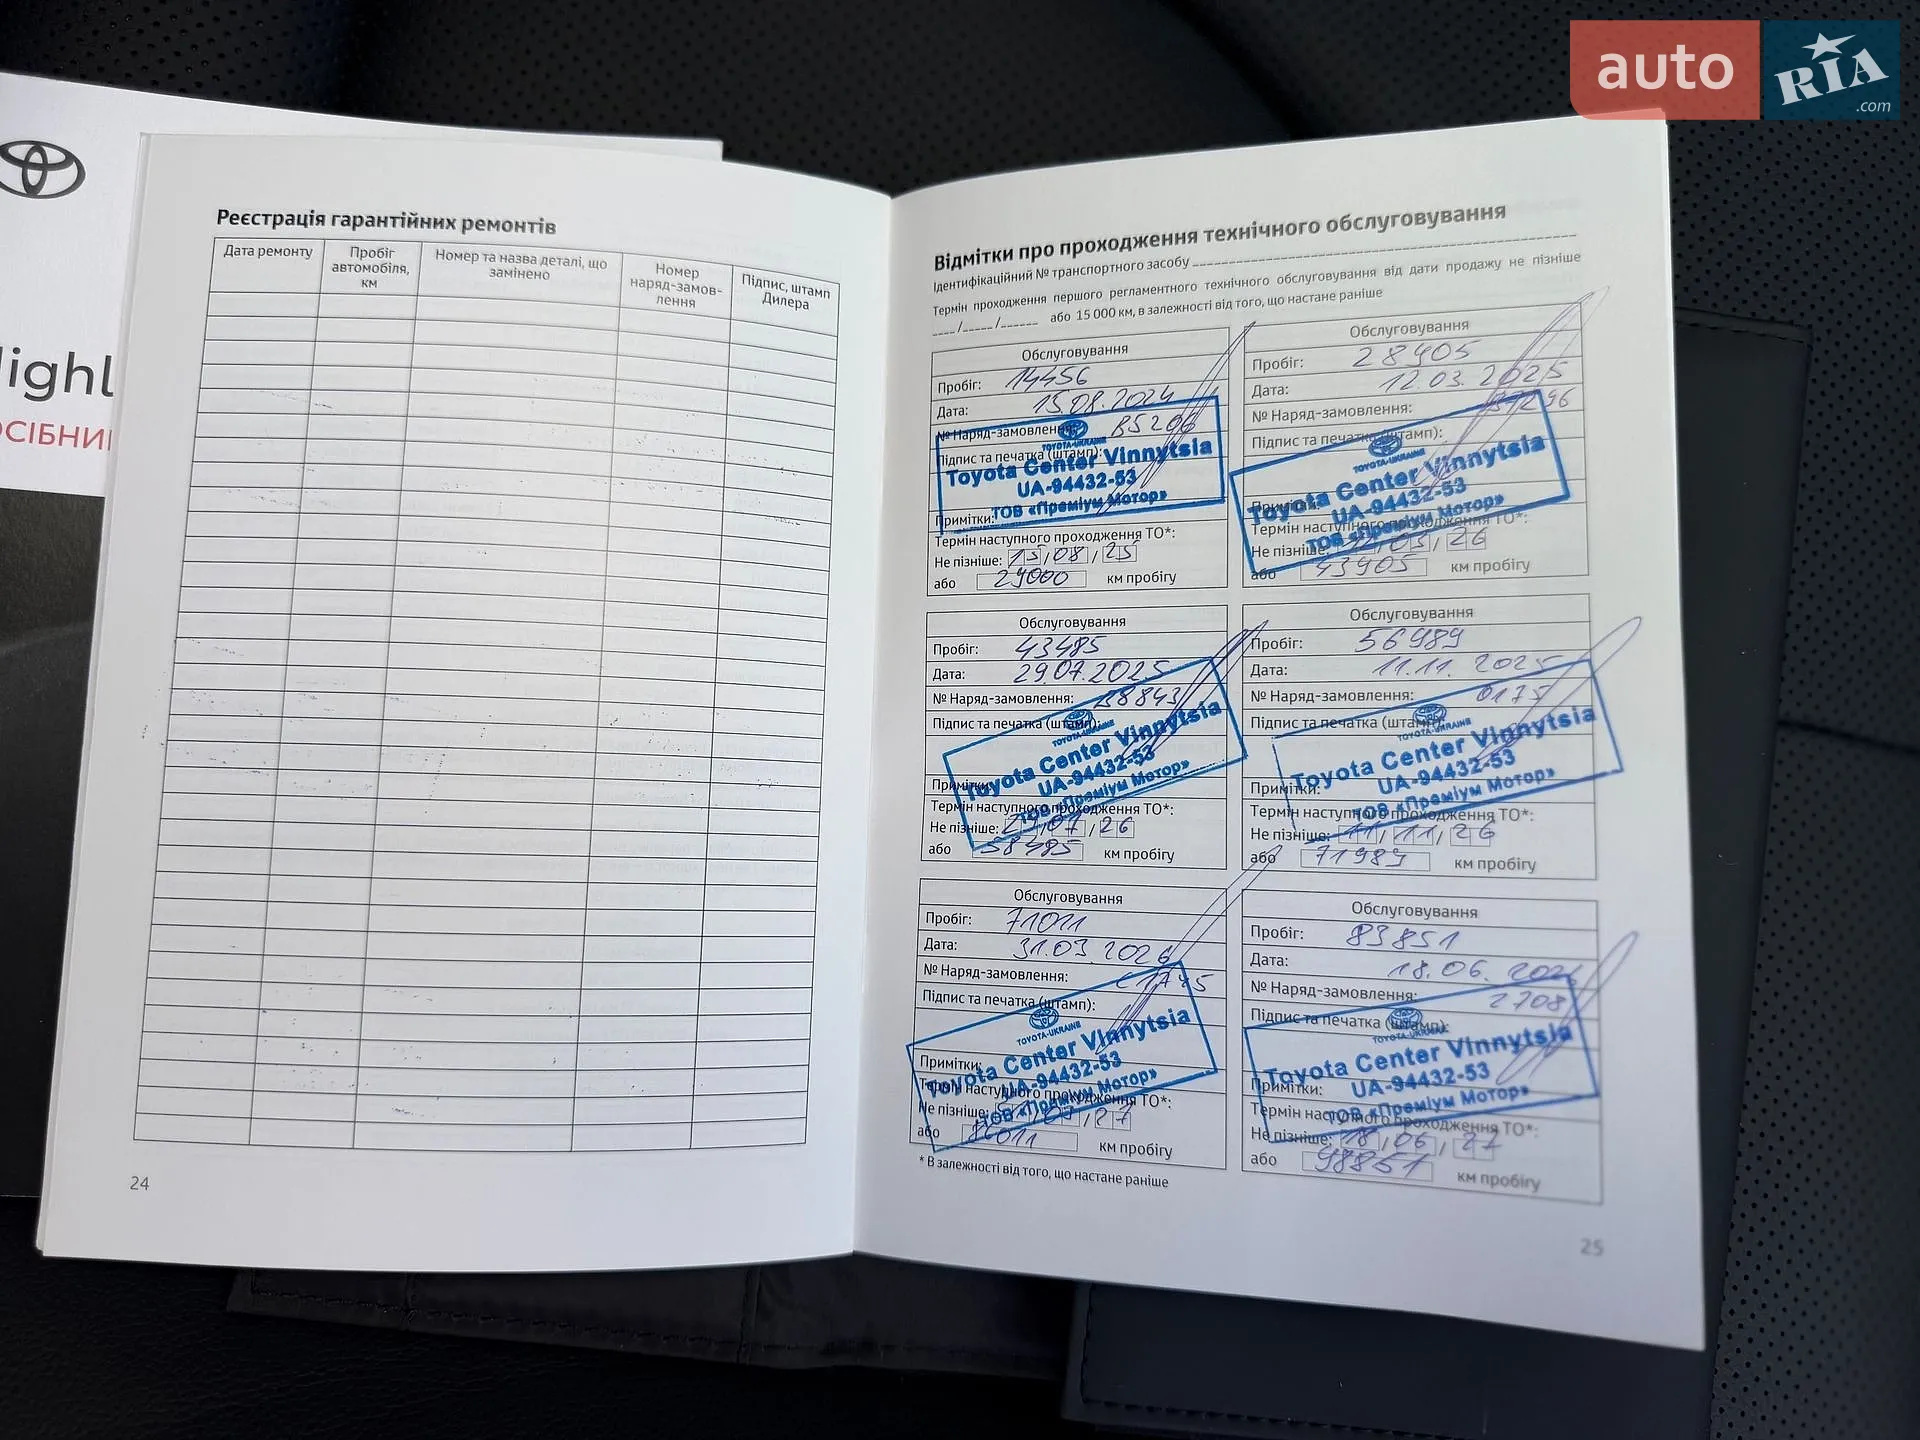 auto
RIA
.com
Highl
ОСІБНИ
Реєстрація гарантійних ремонтів
Дата ремонту
Пробіг автомобіля, км
Номер та назва деталі, що замінено
Номер наряд-замов-лення
Підпис, штамп Дилера
24
Відмітки про проходження технічного обслуговування
Ідентифікаційний № транспортного засобу
Термін проходження першого регламентного технічного обслуговування від дати продажу не пізніше
____/_____/______ або 15 000 км, в залежності від того, що настане раніше
Обслуговування
Пробіг: 14456
Дата: 15.08.2024
№ Наряд-замовлення: B5206
Підпис та печатка (штамп):
TOYOTA-UKRAINE
Toyota Center Vinnytsia
UA-94432-53
ТОВ «Преміум Мотор»
Примітки:
Термін наступного проходження ТО*:
Не пізніше: 15,08,25
або 29000 км пробігу
Обслуговування
Пробіг: 28905
Дата: 12.03.2025
№ Наряд-замовлення:
Підпис та печатка (штамп):
TOYOTA-UKRAINE
Toyota Center Vinnytsia
UA-94432-53
ТОВ «Преміум Мотор»
Примітки:
Термін наступного проходження ТО*:
Не пізніше: 12,03,26
або 43905 км пробігу
Обслуговування
Пробіг: 43485
Дата: 29.07.2025
№ Наряд-замовлення: B8843
Підпис та печатка (штамп):
TOYOTA-UKRAINE
Toyota Center Vinnytsia
UA-94432-53
ТОВ «Преміум Мотор»
Примітки:
Термін наступного проходження ТО*:
Не пізніше: 29,07,26
або 58485 км пробігу
Обслуговування
Пробіг: 56989
Дата: 11.11.2025
№ Наряд-замовлення: 0175
Підпис та печатка (штамп):
TOYOTA-UKRAINE
Toyota Center Vinnytsia
UA-94432-53
ТОВ «Преміум Мотор»
Примітки:
Термін наступного проходження ТО*:
Не пізніше: 11,11,26
або 71989 км пробігу
Обслуговування
Пробіг: 71011
Дата: 31.03.2026
№ Наряд-замовлення: C1745
Підпис та печатка (штамп):
TOYOTA-UKRAINE
Toyota Center Vinnytsia
UA-94432-53
ТОВ «Преміум Мотор»
Примітки:
Термін наступного проходження ТО*:
Не пізніше: 31,03,27
або 86011 км пробігу
Обслуговування
Пробіг: 83851
Дата: 18.06.2026
№ Наряд-замовлення: 2708
Підпис та печатка (штамп):
TOYOTA-UKRAINE
Toyota Center Vinnytsia
UA-94432-53
ТОВ «Преміум Мотор»
Примітки:
Термін наступного проходження ТО*:
Не пізніше: 18,06,27
або 98851 км пробігу
* В залежності від того, що настане раніше
25